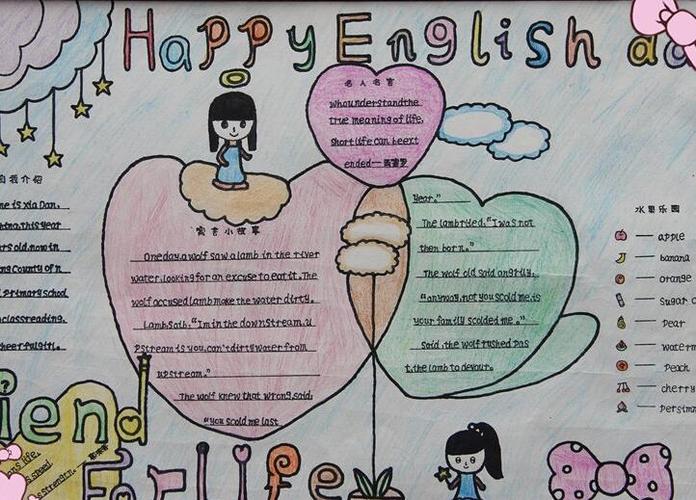 Happy English
名人名言
who understand the
true meaning of life,
short life can be ext
ended—西塞罗
自我介绍
me is Xia Dan.
this year
rs old.now in
ng County of n
primary school
class reading.
heerful girl.
寓言小故事
One day.a wolf saw a lamb in the river
water.looking for an excuse to eat it. The
wolf accused lamb make the water dirty.
Lamb Sath."Im in the down Stream.u
Pstream is you.can't dirty water from
upstream."
The wolf knew that wrong.said.
"you scold me last
year."
The lamb tried."I was not
then born."
The wolf old said angrily.
"anyway.not you scold me.is
your family scolded me."
Said.the wolf rushed pas
t.the lamb to devour.
水果乐园
apple
banana
orange
Sugar c
pear
waterm
Peach
cherry
Persimm
iend
For life